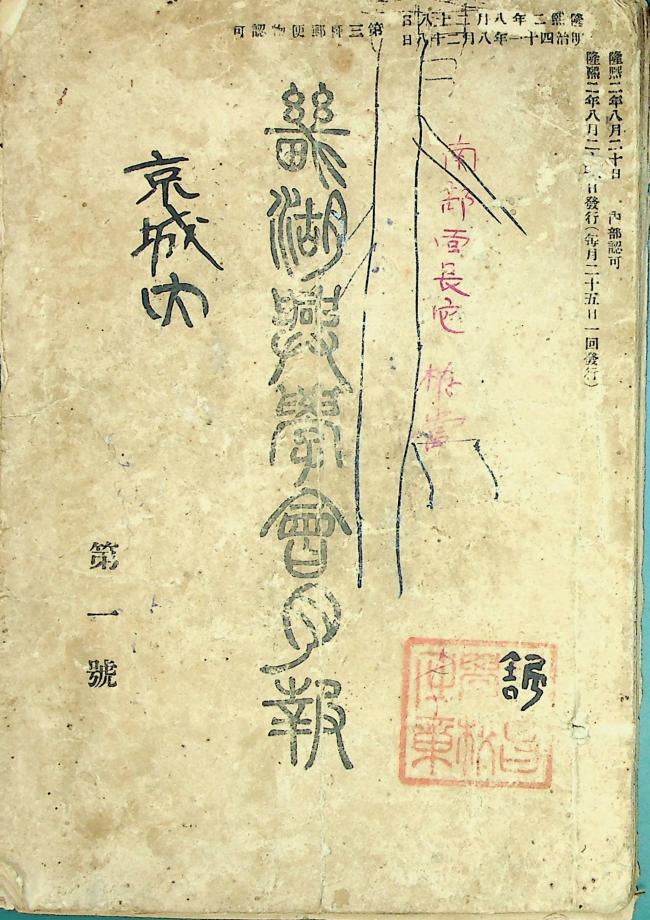 隆熙二年八月二十八日
明治四十一年八月二十八日
第三種郵便物認可
隆熙二年八月二十日 內部認可
隆熙二年八月二十五日發行(每月二十五日一回發行)
南部面長宅
畿湖興學會月報
京城內
第一號